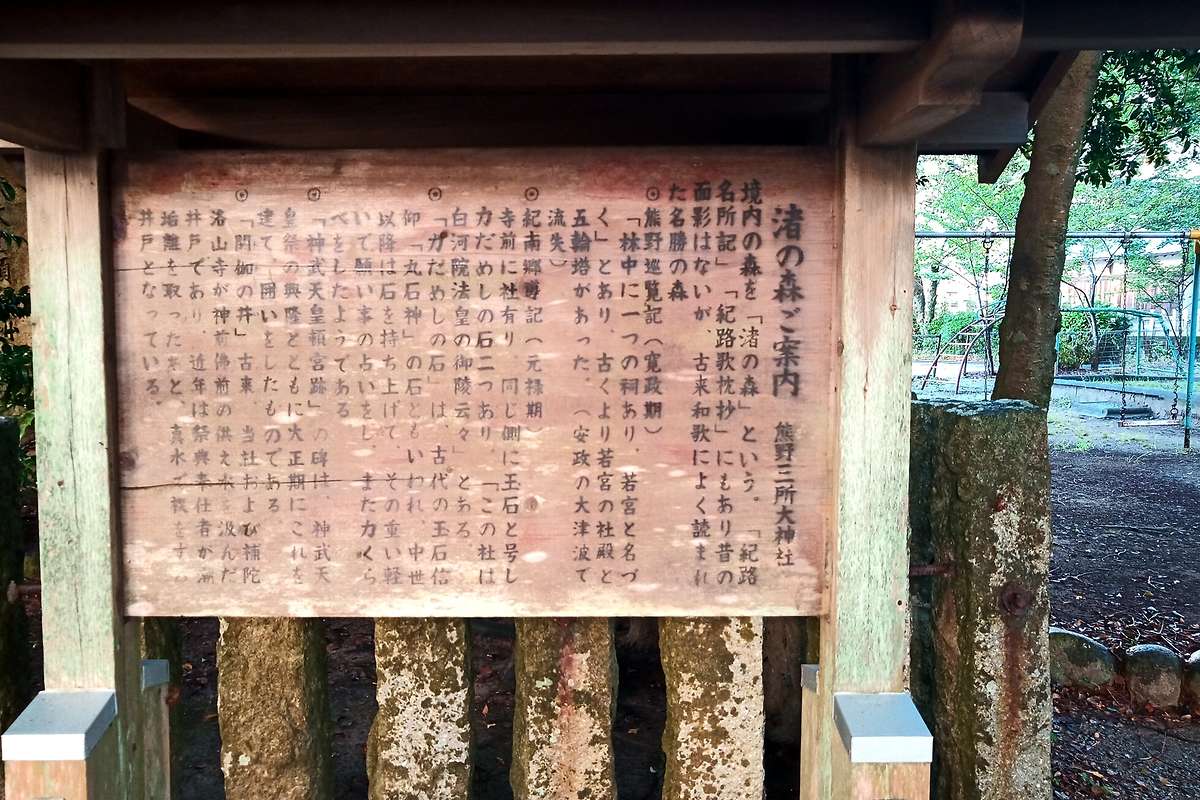 渚の森ご案内 熊野三所大神社
境内の森を「渚の森」という。「紀路
名所記」「紀路歌枕抄」にもあり昔の
面影はないが、古来和歌によく読まれ
た名勝の森
⦿熊野巡覧記(寛政期)
「林中に一つの祠あり、若宮と名づ
く」とあり、古くより若宮の社殿と
五輪塔があった。(安政の大津波で
流失)
⦿紀南郷導記(元禄期)
寺前に社有り 同じ側に玉石と号し
力だめしの石二つあり 「この社は
白河院法皇の御陵云々」とある
⦿「力だめしの石」は、古代の玉石信
仰「丸石神」の石ともいわれ、中世
以降は石を持ち上げて、その重い軽
いで願い事の占いをし、また力くら
べをしたようである
⦿「神武天皇頓宮跡」の碑は、神武天
皇祭の興隆とともに大正期にこれを
建て、囲いをしたものである。
⦿「閼伽の井」古来、当社および補陀
洛山寺が神前佛前の供え水を汲んだ
井戸であり 近年は祭典奉仕者が潮
垢離を取ったあと、真水で禊をする
井戸となっている。